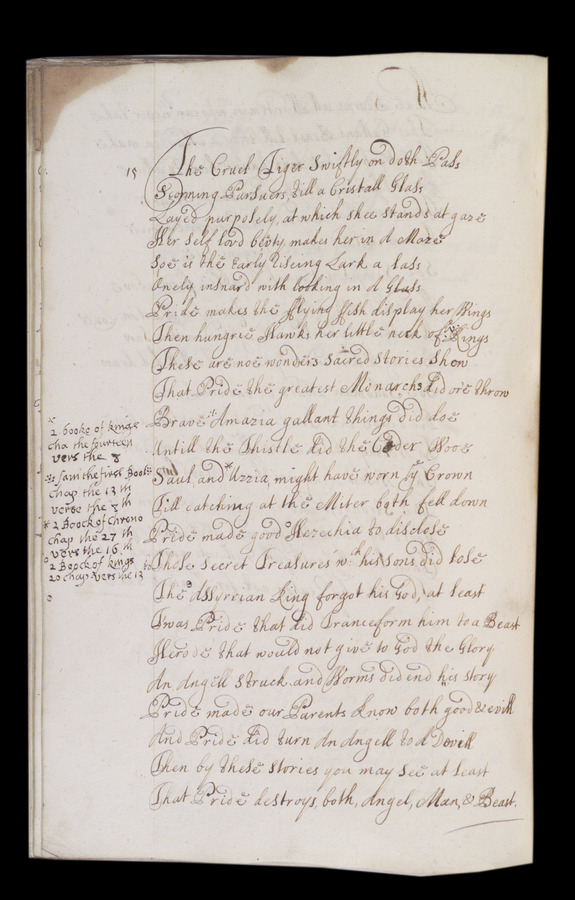 15
The Cruel Tiger Swiftly on doth Pass
Scorning Pursuers, till a Cristall Glass
Layed purposely, at which shee stands at gaze
Her self lov'd bevty makes her in a Maze
Soe is the Early Riseing Lark a lass
Onely insnard with looking in a Glass
Pride makes the fflying ffish display her Wings
Then hungrie Hawks her little neck of Rings
These are noe wonders Sacred Stories show
That Pride the greatest Monarchs did ore throw
Brave Amazia gallant things did doe
Untill the Thistle did the Ceder Wooe
Saul, and *Uzzia, might have worn ye Crown
Till catching at the Miter both fell down
Pride made good Hezechia to disclose
Those Secret Treasures wch his sons did lose
The Assyreian King forgot his God, at least
Twas Pride that did Tranceform him to a Beast
Herode that would not give to God the Glory
An Angell Struck and Worms did end his story
Pride made our Parents know both good & evill
And Pride did turn An Angell to a Devill
Then by these Stories you may see at least
That Pride destroys, both, Angel, Man, & Beast.
*
2 booke of kings
cha the fourteen
vers the 8
Sam the first Book
chap the 13 th
verse the 8 th
* 2 Boock of Chrono
chap the 27 th
vers the 16 th
2 Boock of kings
20 chap vers the 13